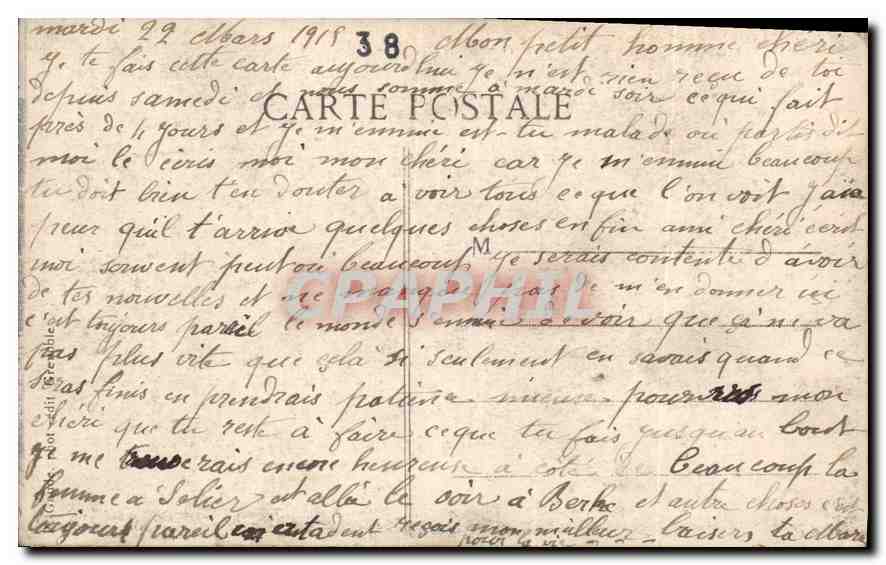 mardi 22 Mars 1915 38 Mon petit homme chéri
Je te fais cette carte aujourdhui Je n'est rien reçu de toi
depuis samedi et nous somme a mardi soir ce qui fait
CARTE POSTALE
près de 4 Jours et Je m'ennuie est-tu malade ou partis dit
moi le écris moi mon chéri car Je m'ennui beaucoup
tu doit bien t'en douter a voir tous ce que l'on voit J'ai
peur qu'il t'arrive quelques choses enfin ami chéri écrit
M
moi souvent peut ou beaucoup Je serais contente d'avoir
de tes nouvelles et ne manque pas de m'en donner ici
GRAPHIL
c'est toujours pareil le monde s'ennui de voir que ça ne va
pas plus vite que celà si seulement en savais quand ce
seras finis en prendrais patience mieux pour mon
chéri que tu reste à faire ce que tu fais Jusqu'au bout
Je me trouverais encore heureuse à coté de beaucoup la
femme a est allé le soir à et autre choses c'est
toujours pareil reçois mon meilleur baisers ta
pour la vie
édit Grenoble